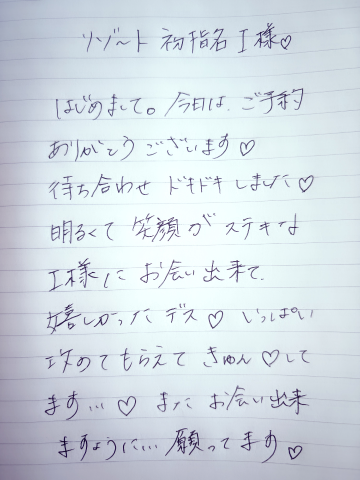 リゾート 初指名 I様♡
はじめまして。今日は、ご予約
ありがとうございます♡
待ち合わせ ドキドキしました♡
明るくて 笑顔が ステキな
I様に お会い出来て、
嬉しかったデス♡ いっぱい
攻めてもらえて きゅん♡して
ます…♡ また お会い出来
ますように… 願ってます♡